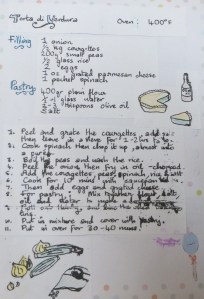 Torta di Verdura Oven: 400°F
Filling 1 onion
½ kg courgettes
200g small peas
½ glass rice
2 eggs
1 oz grated parmesan cheese
1 packet spinach
Pastry 400g plain flour
1 glass water
2-3 tablespoons olive oil
salt
1. Peel and grate the courgettes, add salt
they leave a sieve for 1-2 hrs
2. Cook spinach then chop it up, almost into
a purée.
3. Boil the peas and wash the rice.
4. Peel the onion then fry in oil - chopped
5. Add the courgettes, peas, spinach, rice & salt
6. Cook for 10 mins with
7. Then add eggs and grated cheese
8. For pastry, mix together flour, salt,
oil and water to make a
9. and line the
10. Put in mixture and cover with pastry.
11. Put in oven for 30-40 mins.